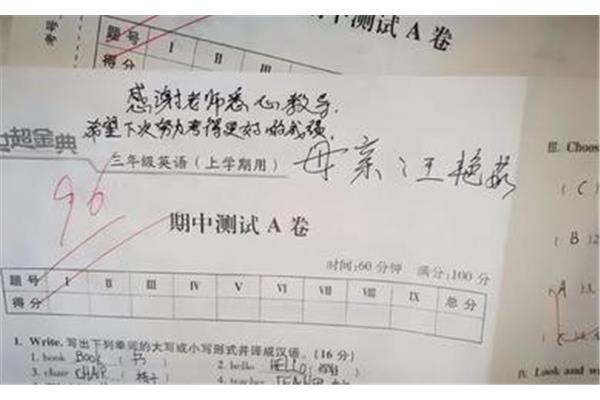 期中测试 A 卷
题号 I II III
得分
感谢老师悉心教导,
希望下次努力考得更好的成绩
超金典
三年级英语(上学期用)
母亲:汪艳茹
96
期中测试 A 卷
时间:60 分钟 满分:100 分
题号 I II III IV V VI VII VIII IX 总分
得分
I. Write. 写出下列单词的大写或小写形式并译成汉语。(16 分)
1. book BOOK (书)
2. hello HELLO (你好)
3. chair CHAIR (椅子)
4. teacher
III. Choos
( C )
( B ) 2
IV. Look and w